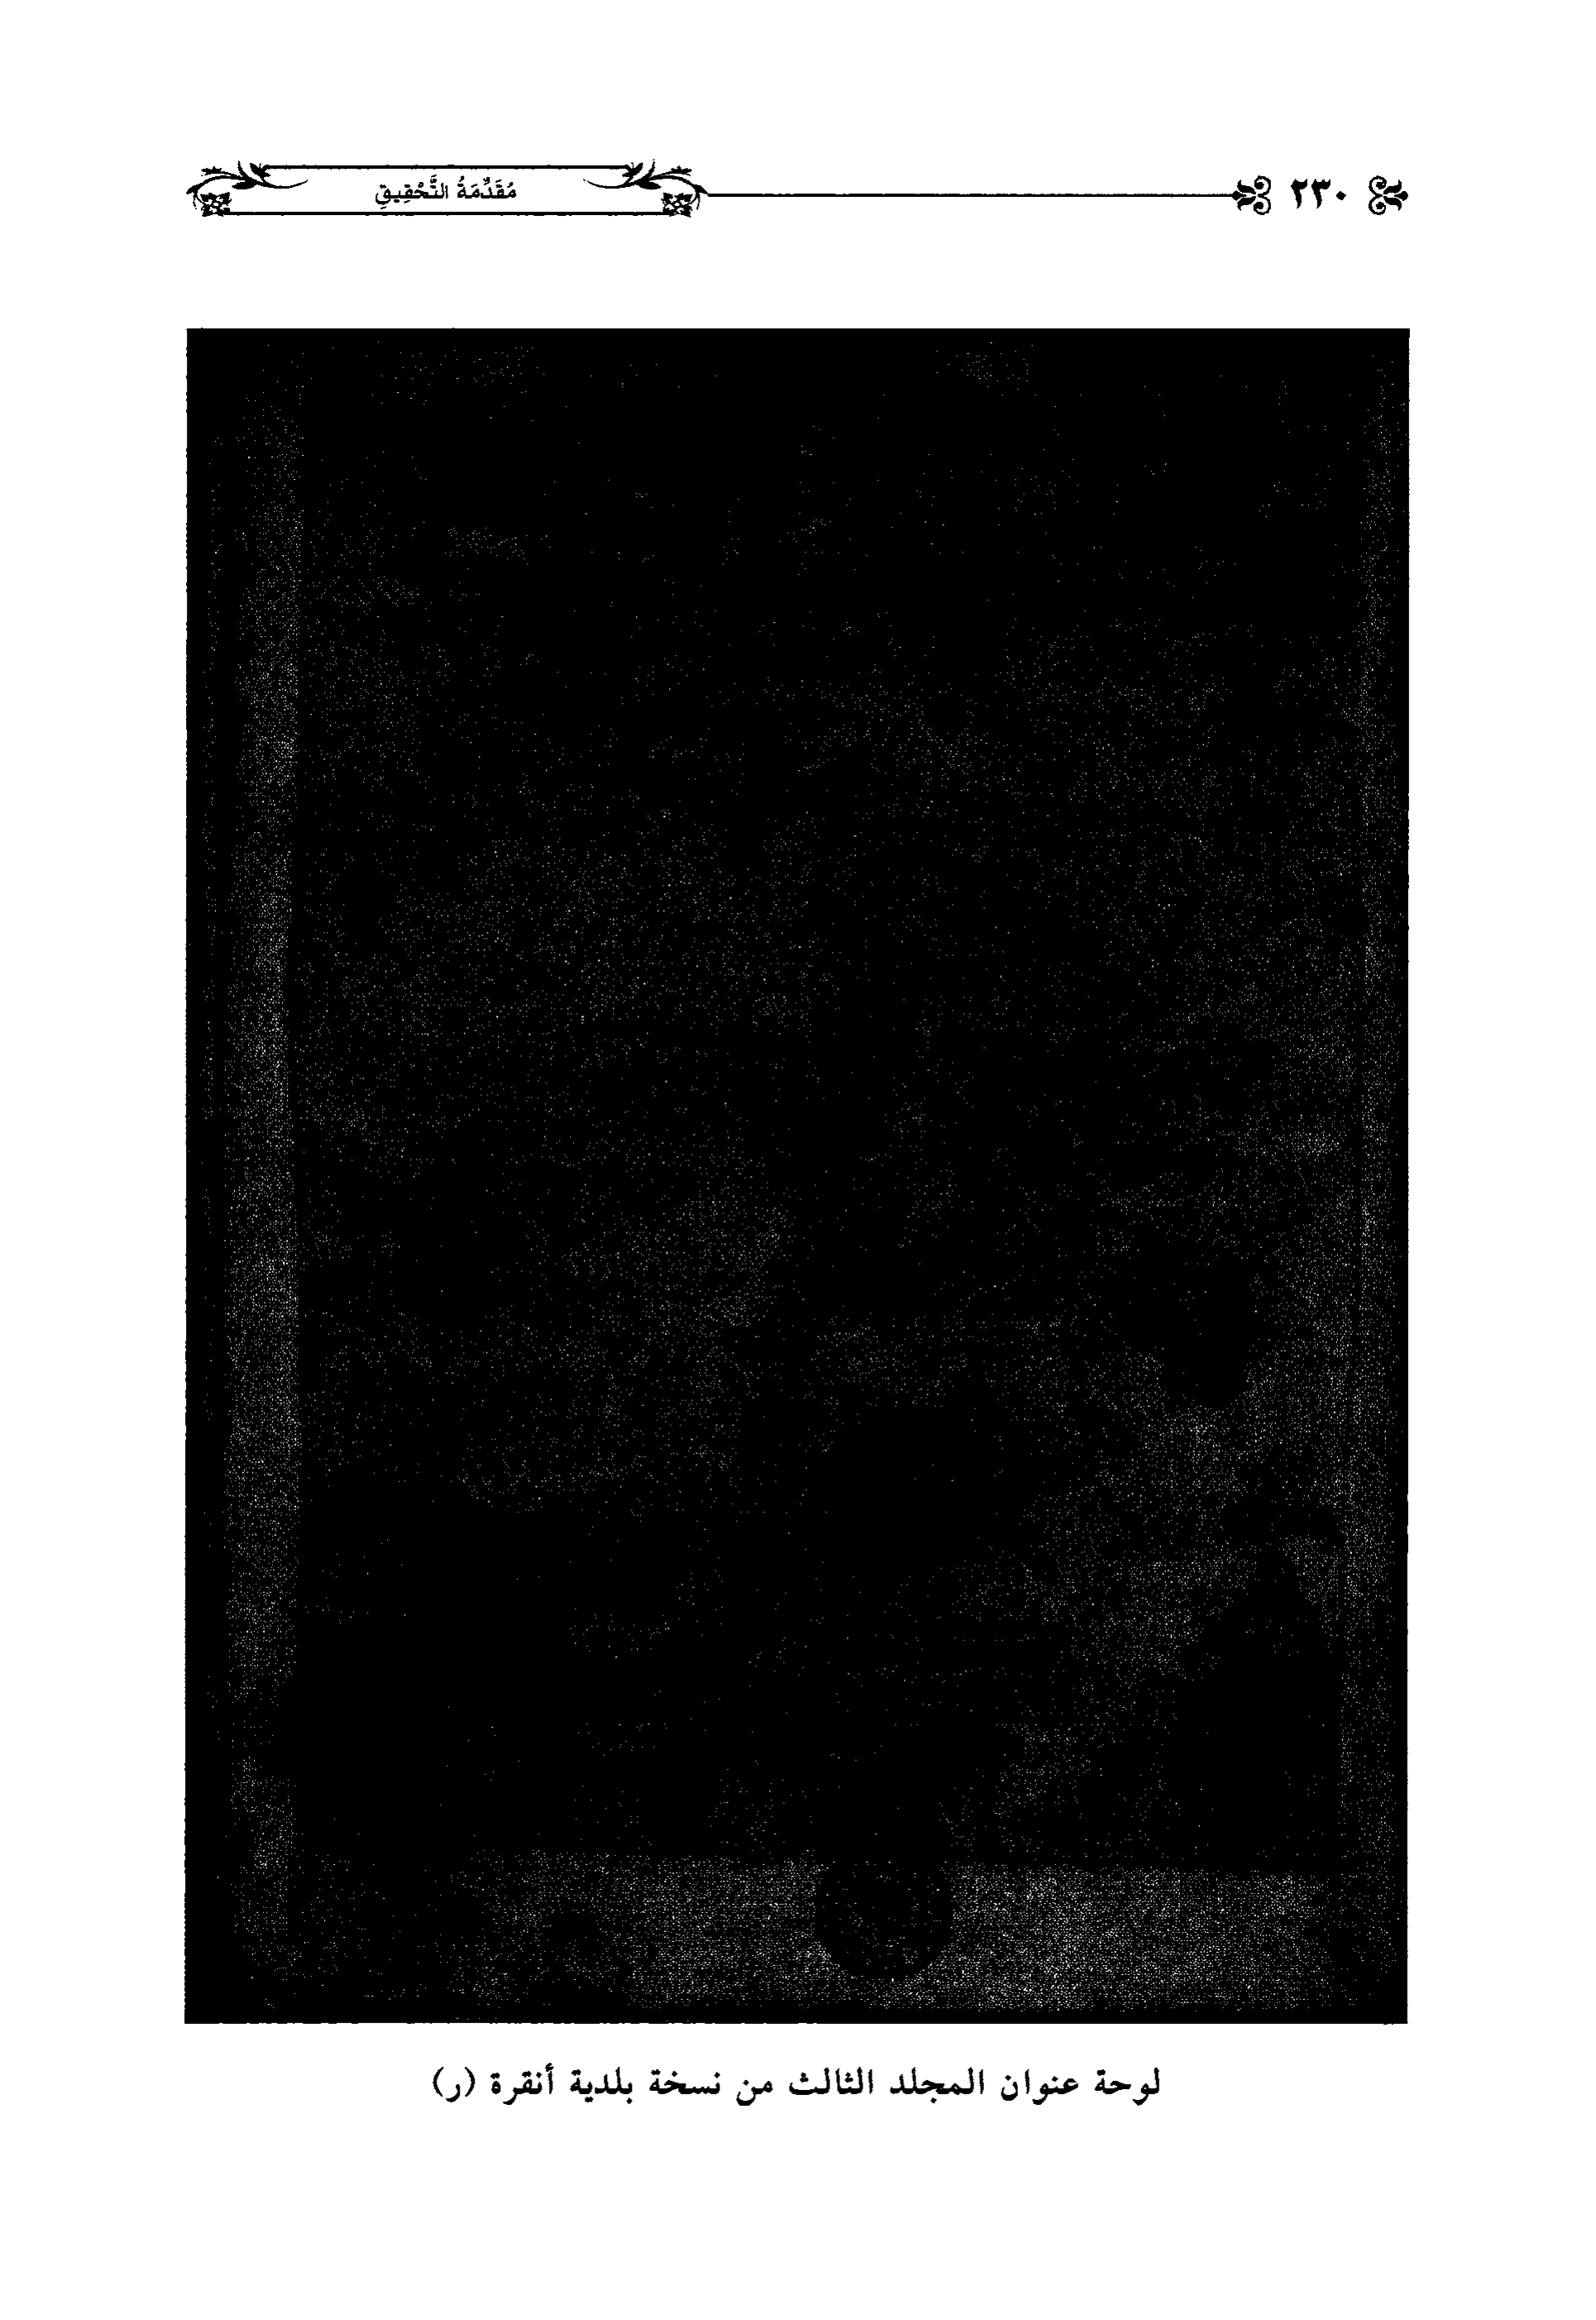 ٢٣٠
مُقَدِّمَةُ التَّحْقِيقِ
لوحة عنوان المجلد الثالث من نسخة بلدية أنقرة (ر)